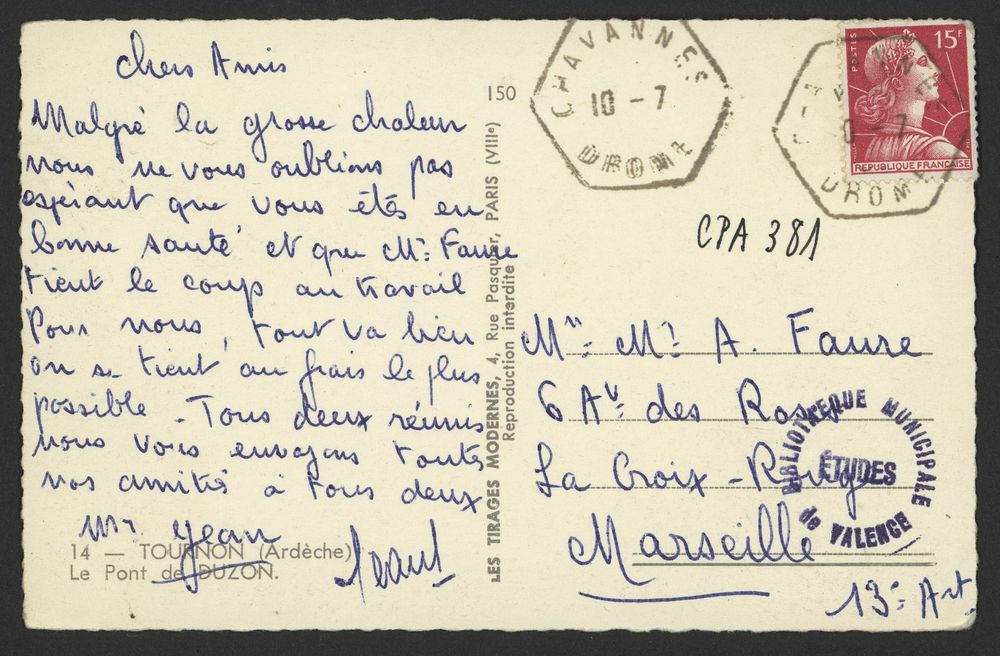 chers Amis
Malgré la grosse chaleur
nous ne vous oublions pas
espérant que vous êtes en
bonne santé et que Mr Faure
tient le coup au travail
Pour nous, tout va bien
on se tient au frais le plus
possible - Tous deux réunis
nous vous envoyons toutes
nos amitiés à tous deux
Mr Jean
14 — TOURNON (Ardèche)
Le Pont de DUZON.
150
LES TIRAGES MODERNES, 4, Rue Pasquier, PARIS (VIIIe)
Reproduction interdite
CHAVANNES
10 - 7
DROME
POSTES
15F
REPUBLIQUE FRANÇAISE
0 - 7
DROME
CPA 381
Mr Me A. Faure
6 Av. des Roses
La Croix-Rouge
Marseille
13e Art
BIBLIOTHEQUE MUNICIPALE
ÉTUDES
de VALENCE